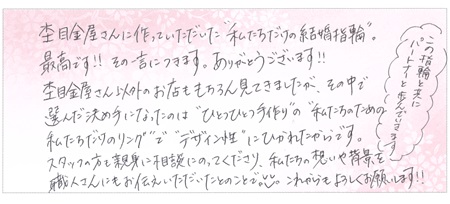 杢目金屋さんに作っていただいた“私たちだけの結婚指輪”。
最高です!! その一言につきます。ありがとうございます!!
杢目金屋さん以外のお店ももちろん見てきましたが、その中で
選んだ決め手になったのは“ひとつひとつ手作り”の“私たちのための
私たちだけのリング”で“デザイン性”にひかれたからです。
スタッフの方も親身に相談にのってくださり、私たちの想いや背景を
職人さんにもお伝えいただいたとのことで。これからもよろしくお願いします!!
この指輪と共に
パートナーと歩んでいきます